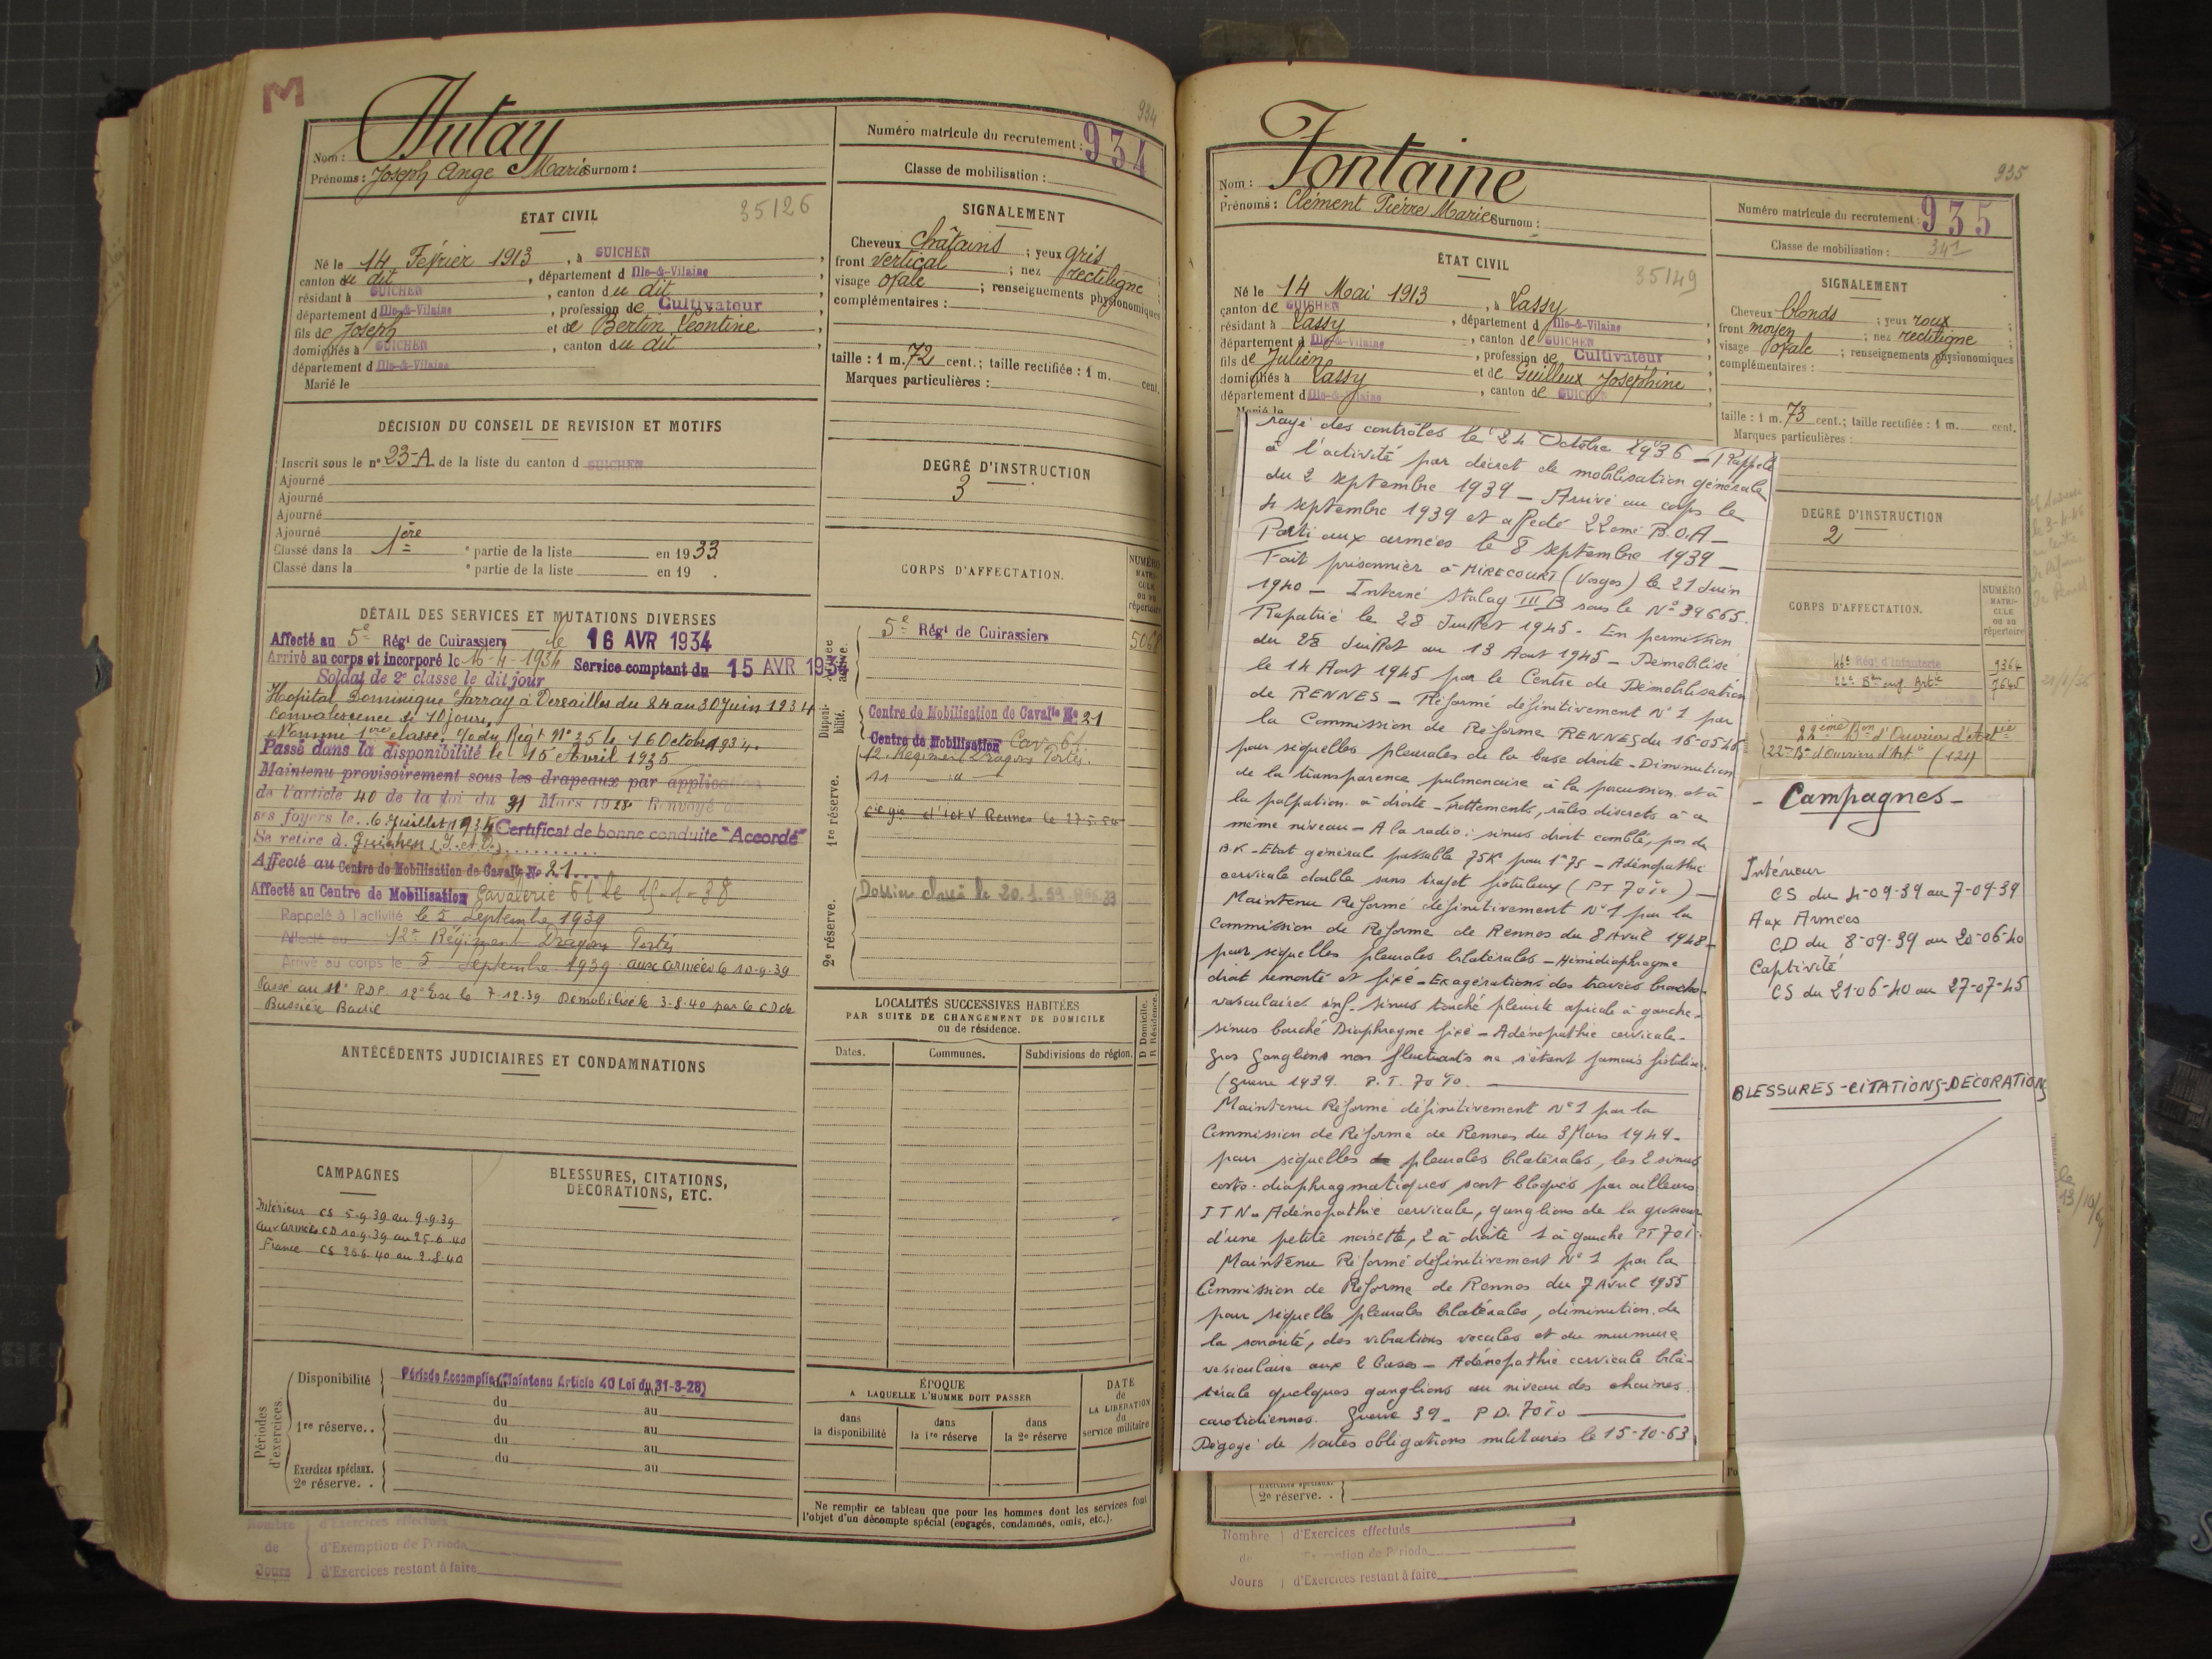 M
934
Nom : Autay
Prénoms : Joseph Ange Marie Surnom :
Numéro matricule du recrutement : 934
Classe de mobilisation :
ÉTAT CIVIL
35126
Né le 14 Février 1913, à GUICHEN
canton du dit, département d Ille-&-Vilaine
résidant à GUICHEN, canton du dit
département d Ille-&-Vilaine, profession de Cultivateur
fils de Joseph et de Bertin Léontine
domiciliés à GUICHEN, canton du dit
département d Ille-&-Vilaine
Marié le
SIGNALEMENT
Cheveux châtains ; yeux gris ;
front vertical ; nez rectiligne ;
visage ovale ; renseignements physionomiques
complémentaires :
taille : 1 m. 72 cent.; taille rectifiée : 1 m. cent.
Marques particulières :
DÉCISION DU CONSEIL DE REVISION ET MOTIFS
Inscrit sous le nº 23-A de la liste du canton d GUICHEN
Ajourné
Ajourné
Ajourné
Ajourné
Classé dans la 1ère partie de la liste en 1933
Classé dans la e partie de la liste en 19 .
DEGRÉ D'INSTRUCTION
3
DÉTAIL DES SERVICES ET MUTATIONS DIVERSES
Affecté au 5e Régt de Cuirassiers le 16 AVR 1934
Arrivé au corps et incorporé le 16-4-1934 Service comptant du 15 AVR 1934
Soldat de 2e classe le dit jour
Hopital Dominique Larray à Versailles du 24 au 30 Juin 1934
Convalescence de 10 jours
Nommé 1ère classe, O/ du Régt Nº 25 le 16 Octobre 1934.
Passé dans la disponibilité le 15 Avril 1935
Maintenu provisoirement sous les drapeaux par application
de l'article 40 de la loi du 31 Mars 1928 Renvoyé dans
ses foyers le 6 Juillet 1935 Certificat de bonne conduite "Accordé"
Se retire à Guichen (I. et V.)
Affecté au Centre de Mobilisation de Cavalie Nº 21
Affecté au Centre de Mobilisation Cavalerie 61 le 15-1-38
Rappelé à l'activité le 5 Septembre 1939
Affecté au 12e Régiment Dragons Portés
Arrivé au corps le 5 Septembre 1939 aux armées le 10-9-39
Passé au 11e RDP 12e Esc le 7-12-39 Démobilisé le 3-8-40 par le CD de
Bussière Badil
CORPS D'AFFECTATION.
NUMÉRO MATRICULE ou au répertoire
Armée active.
5e Régt de Cuirassiers
Disponibilité.
Centre de Mobilisation de Cavalie Nº 21
Centre de Mobilisation Cav. 61
12 Régiment Dragons Portés.
11 — " —
1re réserve.
2e réserve.
LOCALITÉS SUCCESSIVES HABITÉES
PAR SUITE DE CHANGEMENT DE DOMICILE
ou de résidence.
Dates. Communes. Subdivisions de région. D Domicile. R Résidence.
ANTÉCÉDENTS JUDICIAIRES ET CONDAMNATIONS
CAMPAGNES
Intérieur CS 5-9-39 au 9-9-39
aux armées CD 10-9-39 au 25-6-40
France CS 26-6-40 au 2-8-40
BLESSURES, CITATIONS,
DÉCORATIONS, ETC.
Périodes d'exercices.
Disponibilité Période Accomplie (Maintenu Article 40 Loi du 31-3-28)
du au
1re réserve. . du au
du au
du au
Exercices spéciaux. du au
2e réserve. .
ÉPOQUE
A LAQUELLE L'HOMME DOIT PASSER
dans la disponibilité
dans la 1re réserve
dans la 2e réserve
DATE de LA LIBÉRATION du service militaire
Ne remplir ce tableau que pour les hommes dont les services font
l'objet d'un décompte spécial (engagés, condamnés, omis, etc.).
Nombre d'Exercices effectués
de d'Exemption de Période
Jours d'Exercices restant à faire
935
Nom : Fontaine
Prénoms : Clément Pierre Marie Surnom :
Numéro matricule du recrutement : 935
Classe de mobilisation :
ÉTAT CIVIL
35149
Né le 14 Mai 1913, à Lassy
canton de GUICHEN, département d Ille-&-Vilaine
résidant à Lassy, canton de GUICHEN
département d Ille-&-Vilaine, profession de Cultivateur
fils de Julien et de Guilleux Joséphine
domiciliés à Lassy, canton de GUICHEN
département d Ille-&-Vilaine
Marié le
SIGNALEMENT
Cheveux blonds ; yeux roux ;
front moyen ; nez rectiligne ;
visage ovale ; renseignements physionomiques
complémentaires :
taille : 1 m. 73 cent.; taille rectifiée : 1 m. cent.
Marques particulières :
DEGRÉ D'INSTRUCTION
2
CORPS D'AFFECTATION.
NUMÉRO MATRICULE ou au répertoire
46e Régt d'Infanterie 9364
22ème Bon d'Ouvriers d'Artie
22e Bn d'Ouvriers d'Art (124)
rayé des contrôles le 24 Octobre 1936 — Rappelé
à l'activité par décret de mobilisation générale
du 2 septembre 1939 — Arrivé au corps le
4 septembre 1939 et affecté 22ème B.O.A —
Parti aux armées le 8 septembre 1939 —
Fait prisonnier à MIRECOURT (Vosges) le 21 Juin
1940 — Interné Stalag III B sous le Nº 39665.
Rapatrié le 28 Juillet 1945. En permission
du 28 Juillet au 13 Aout 1945 — Démobilisé
le 14 Aout 1945 par le Centre de Démobilisation
de RENNES — Réformé définitivement Nº 1 par
la Commission de Réforme RENNES du 16-05-46
pour séquelles pleurales de la base droite — Diminution
de la transparence pulmonaire à la percussion et à
la palpation à droite — Frottements, râles discrets à ce
même niveau — A la radio : sinus droit comblé, pas de
B.K — Etat général passable 75K pour 1m75 — Adénopathie
cervicale double sans trajet fistuleux (PT 70%) —
Maintenu Réformé définitivement Nº 1 par la
Commission de Réforme de Rennes du 8 Avril 1948 —
pour séquelles pleurales bilatérales — Hémidiaphragme
droit remonté et fixé — Exagérations des travées broncho-
vasculaires inf. sinus bouché pleurite apicale à gauche —
sinus bouché Diaphragme fixé — Adénopathie cervicale —
gros ganglions non fluctuants ne s'étant jamais fistulisé.
(guerre 1939. P.T. 70%.
Maintenu Réformé définitivement Nº 1 par la
Commission de Réforme de Rennes du 3 Mars 1949 —
pour séquelles pleurales bilatérales, les 2 sinus
costo-diaphragmatiques sont bloqués par ailleurs
ITN — Adénopathie cervicale, ganglions de la grosseur
d'une petite noisette, 2 à droite 1 à gauche PT 70%.
Maintenu Réformé définitivement Nº 1 par la
Commission de Réforme de Rennes du 7 Avril 1955
pour séquelles pleurales bilatérales, diminution de
la sonorité, des vibrations vocales et du murmure
vésiculaire aux 2 bases — Adénopathie cervicale bila-
térale quelques ganglions au niveau des chaines
carotidiennes. Guerre 39 — P D. 70%
Dégagé de toutes obligations militaires le 15-10-63
— Campagnes —
Intérieur
CS du 4-09-39 au 7-09-39
Aux Armées
CD du 8-09-39 au 20-06-40
Captivité
CS du 21-06-40 au 27-07-45
BLESSURES-CITATIONS-DECORATIONS
Exercices spéciaux.
2e réserve. .
Nombre d'Exercices effectués
de d'Exemption de Période
Jours d'Exercices restant à faire